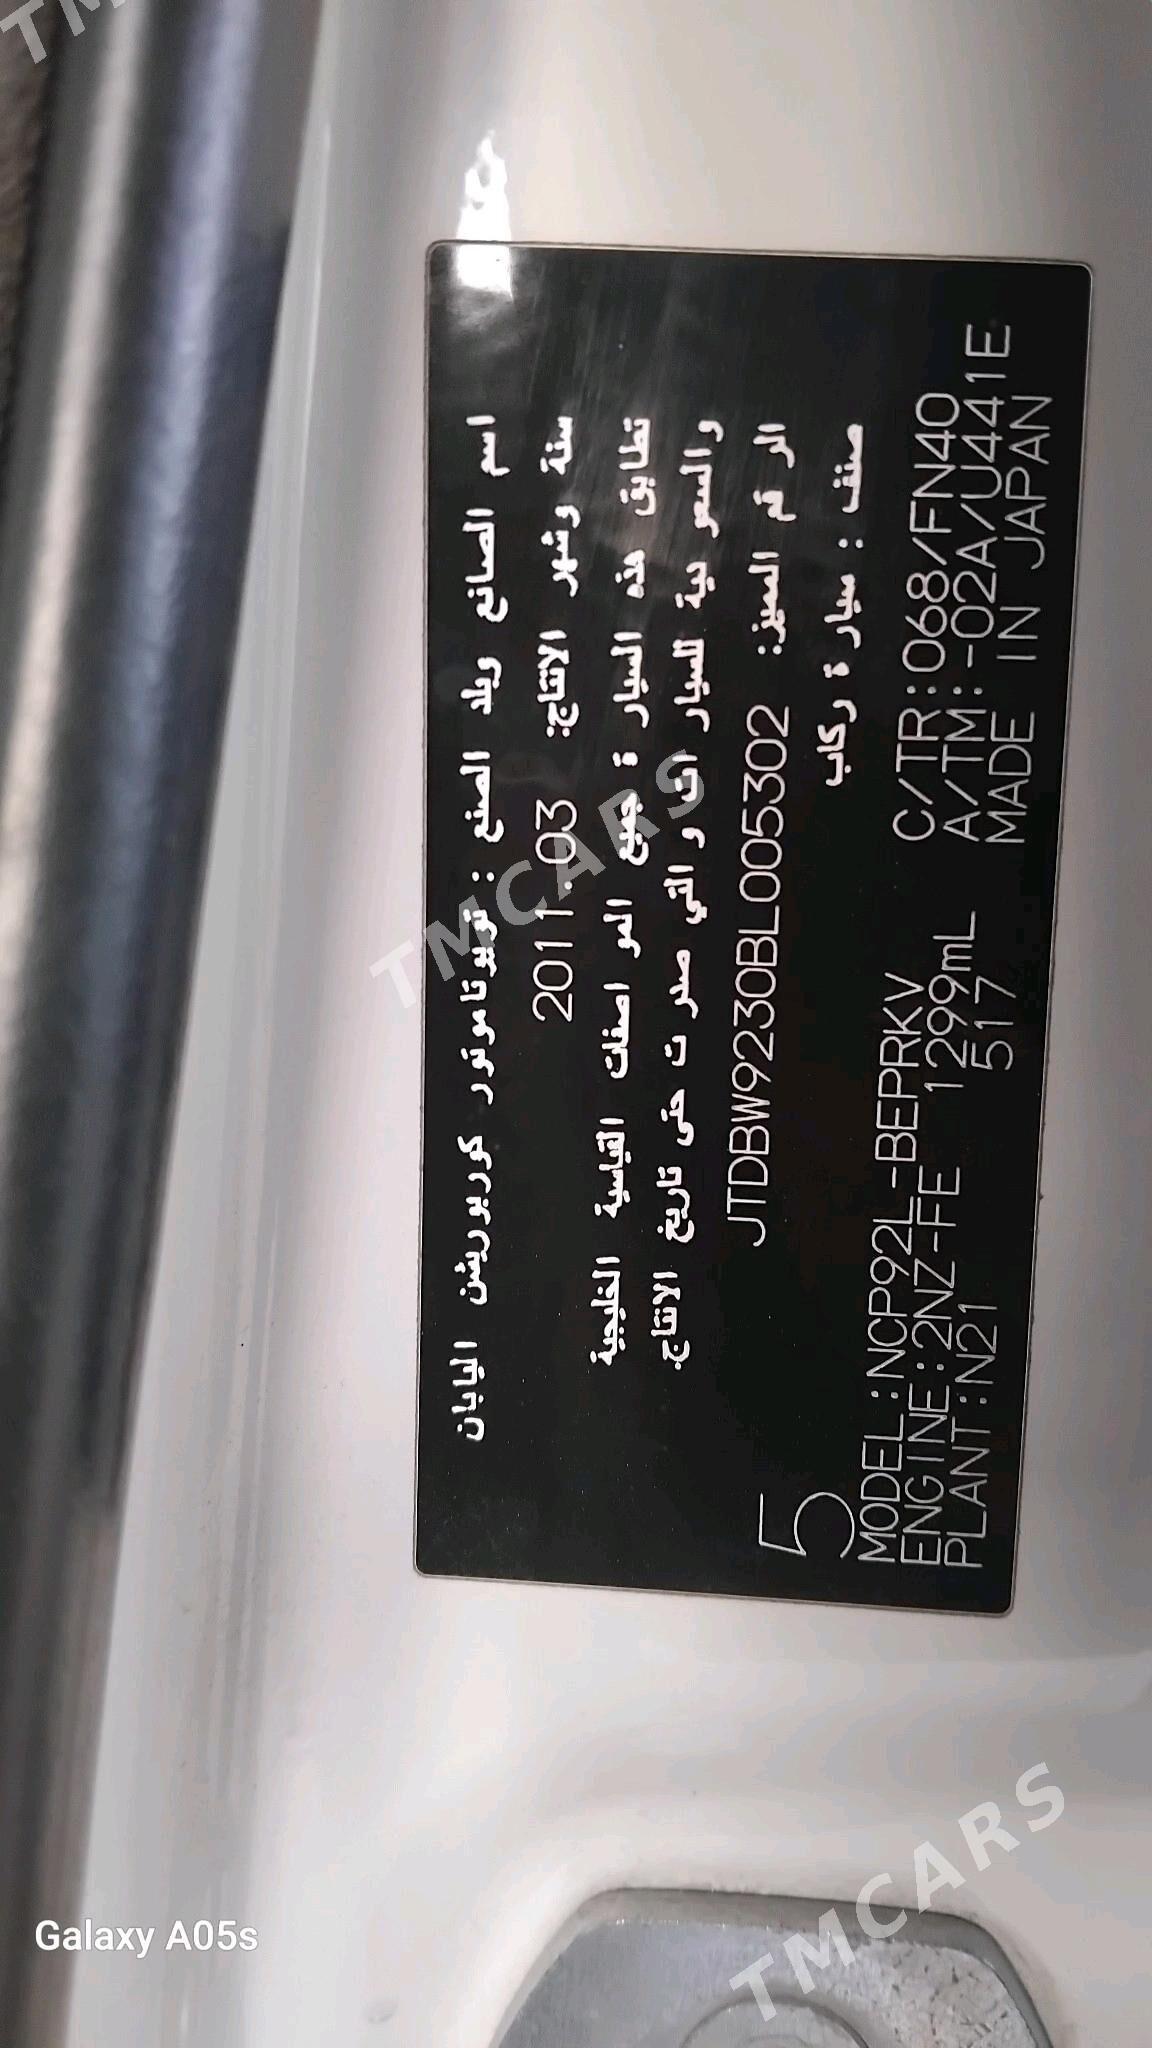 اسم الصانع وبلد الصنع : تويوتا موتور كوربوريشن اليابان
سنة وشهر الانتاج: 2011.03
تطابق هذه السيارة جميع المواصفات القياسية الخليجية
والسعودية للسيارات والتي صدرت حتى تاريخ الانتاج.
الرقم المميز: JTDBW9230BL005302
صنف : سيارة ركاب
5
MODEL:NCP92L-BEPRKV C/TR:068/FN40
ENGINE:2NZ-FE 1299mL A/TM:-02A/U441E
PLANT:N21 517 MADE IN JAPAN
TMCARS
TMCARS
Galaxy A05s